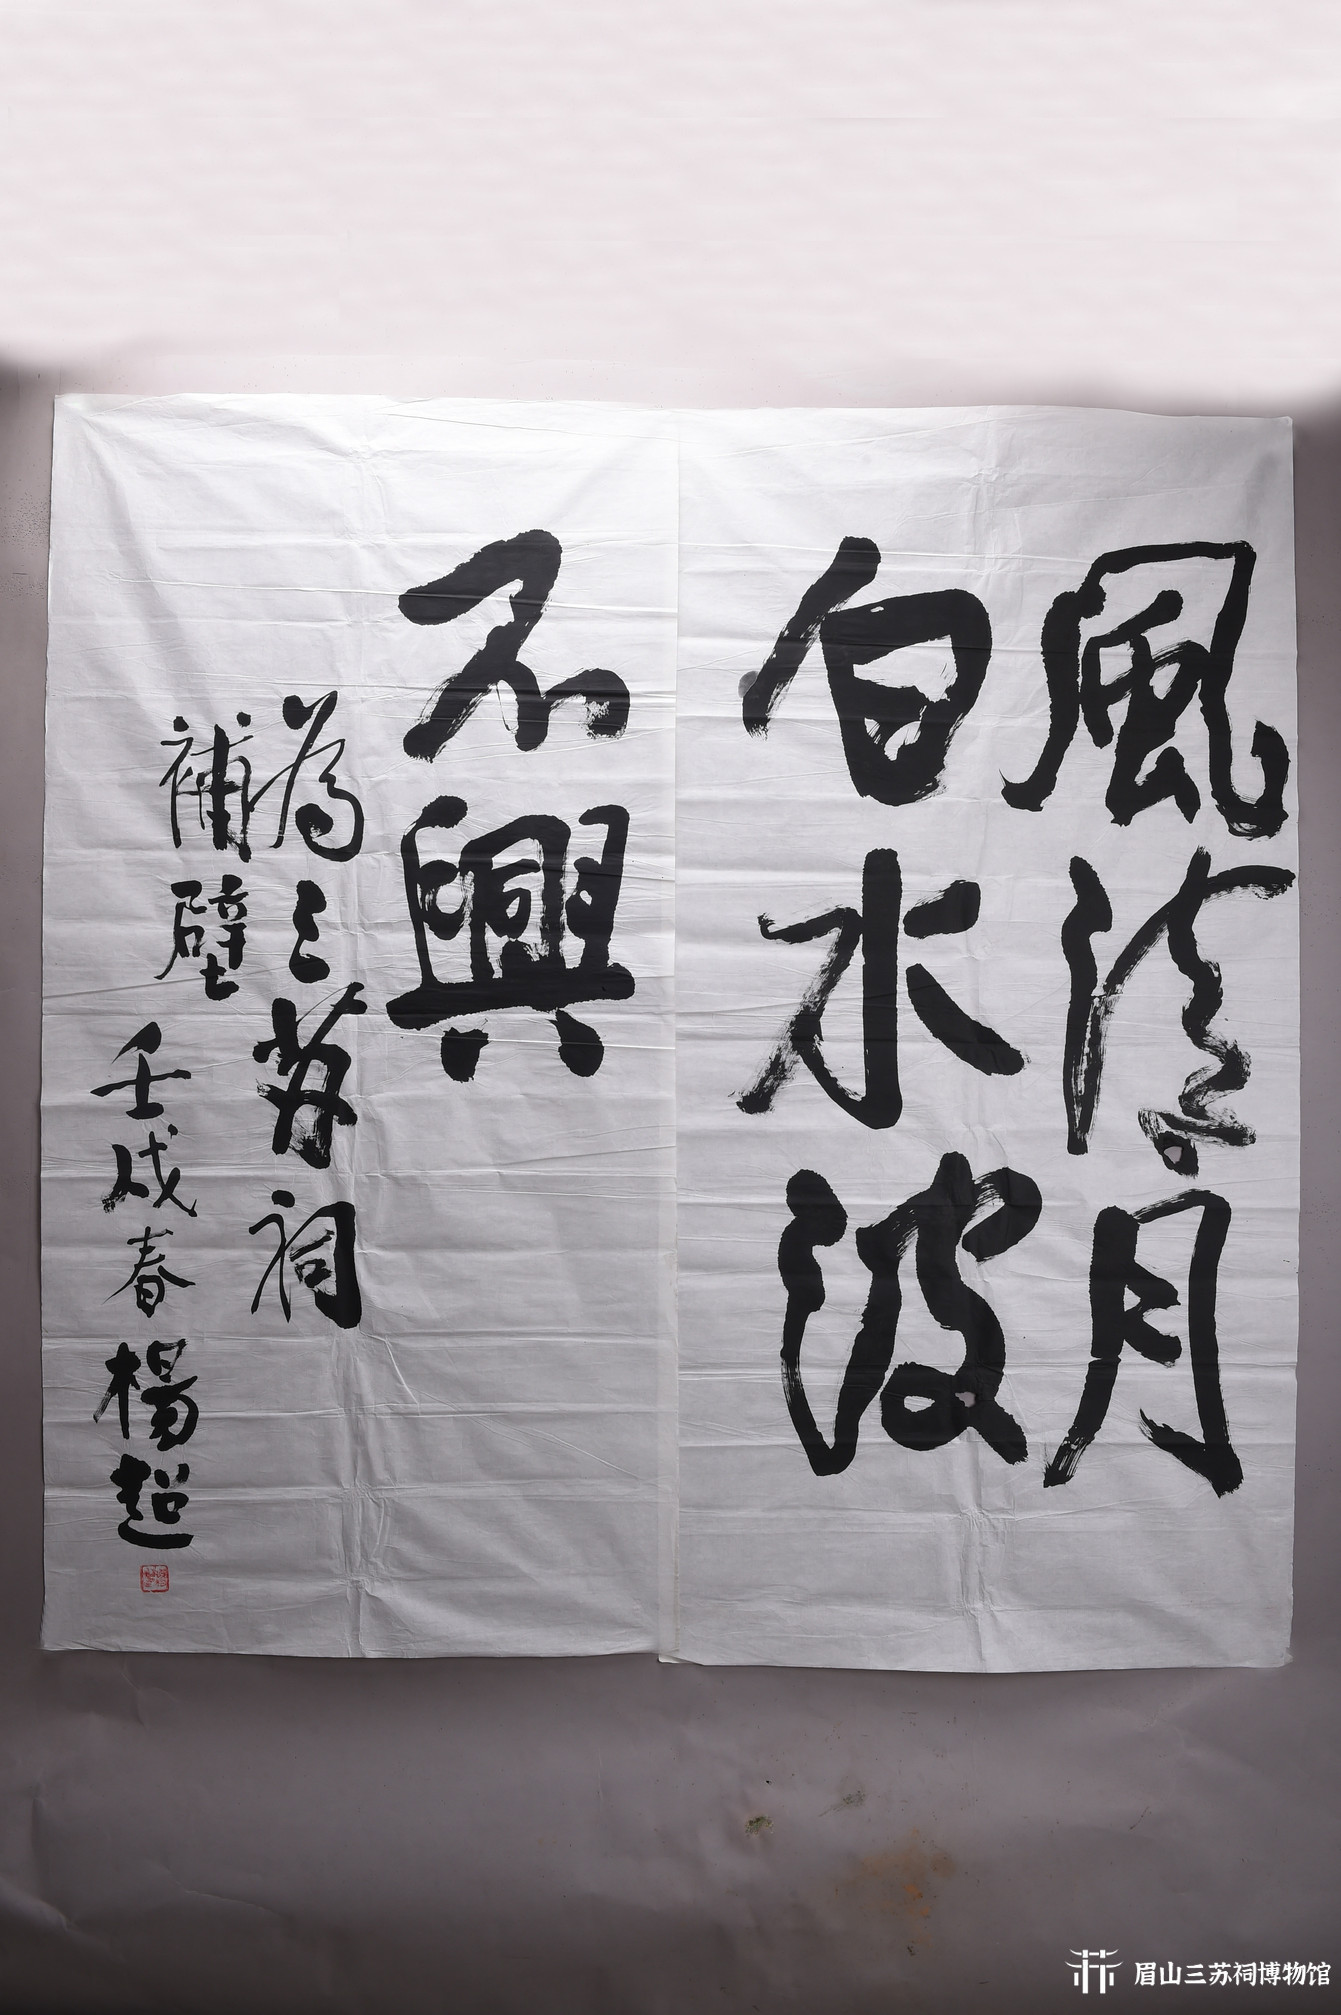 風清月
白水波
不興
為三蘇祠
補壁
壬戌春楊超
眉山三苏祠博物馆